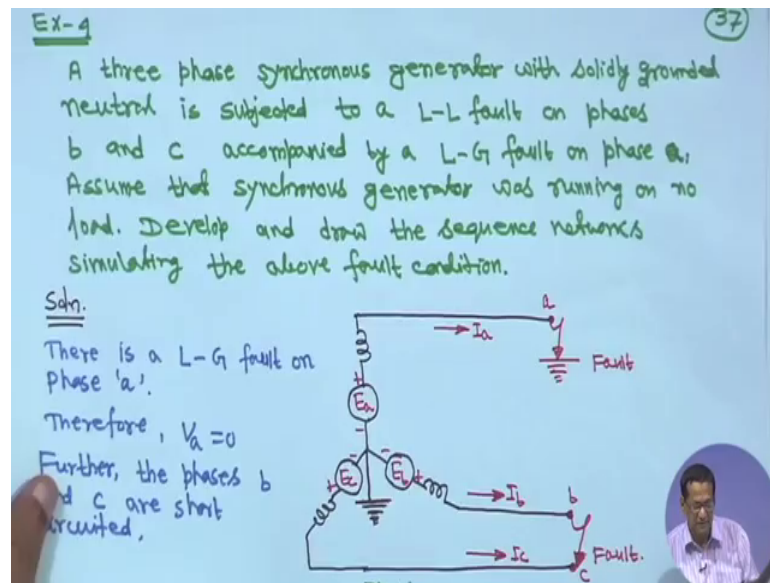 Ex-4
37
A three phase synchronous generator with solidly grounded
neutral is subjected to a L-L fault on phases
b and c accompanied by a L-G fault on phase a.
Assume that synchronous generator was running on no
load. Develop and draw the sequence networks
simulating the above fault condition.
Soln.
There is a L-G fault on
phase 'a'.
Therefore, Va = 0
Further, the phases b
and c are short
circuited.
a
Ia
Fault
+
Ea
-
- -
+ Ec
Eb +
Ib
b
Ic
Fault.
c